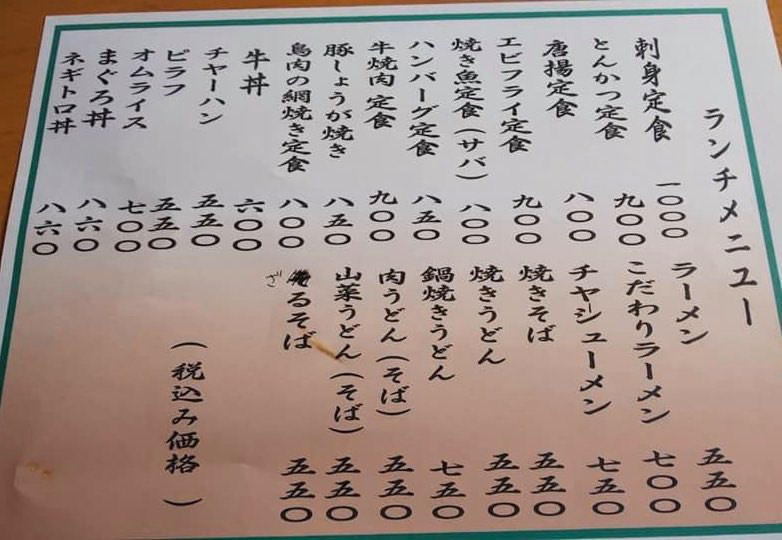 ランチメニュー
刺身定食 一〇〇〇
とんかつ定食 九〇〇
唐揚定食 八〇〇
エビフライ定食 九〇〇
焼き魚定食(サバ) 八〇〇
ハンバーグ定食 八五〇
牛焼肉定食 九〇〇
豚しょうが焼き 八五〇
鳥肉の網焼き定食 八〇〇
牛丼 六〇〇
チャーハン 五五〇
ピラフ 五五〇
オムライス 七〇〇
まぐろ丼 八六〇
ネギトロ丼 八六〇
ラーメン 五五〇
こだわりラーメン 七〇〇
チャーシューメン 七五〇
焼きそば 五五〇
焼きうどん 五五〇
鍋焼きうどん 七五〇
肉うどん(そば) 五五〇
山菜うどん(そば) 五五〇
ざるそば 五五〇
(税込み価格)